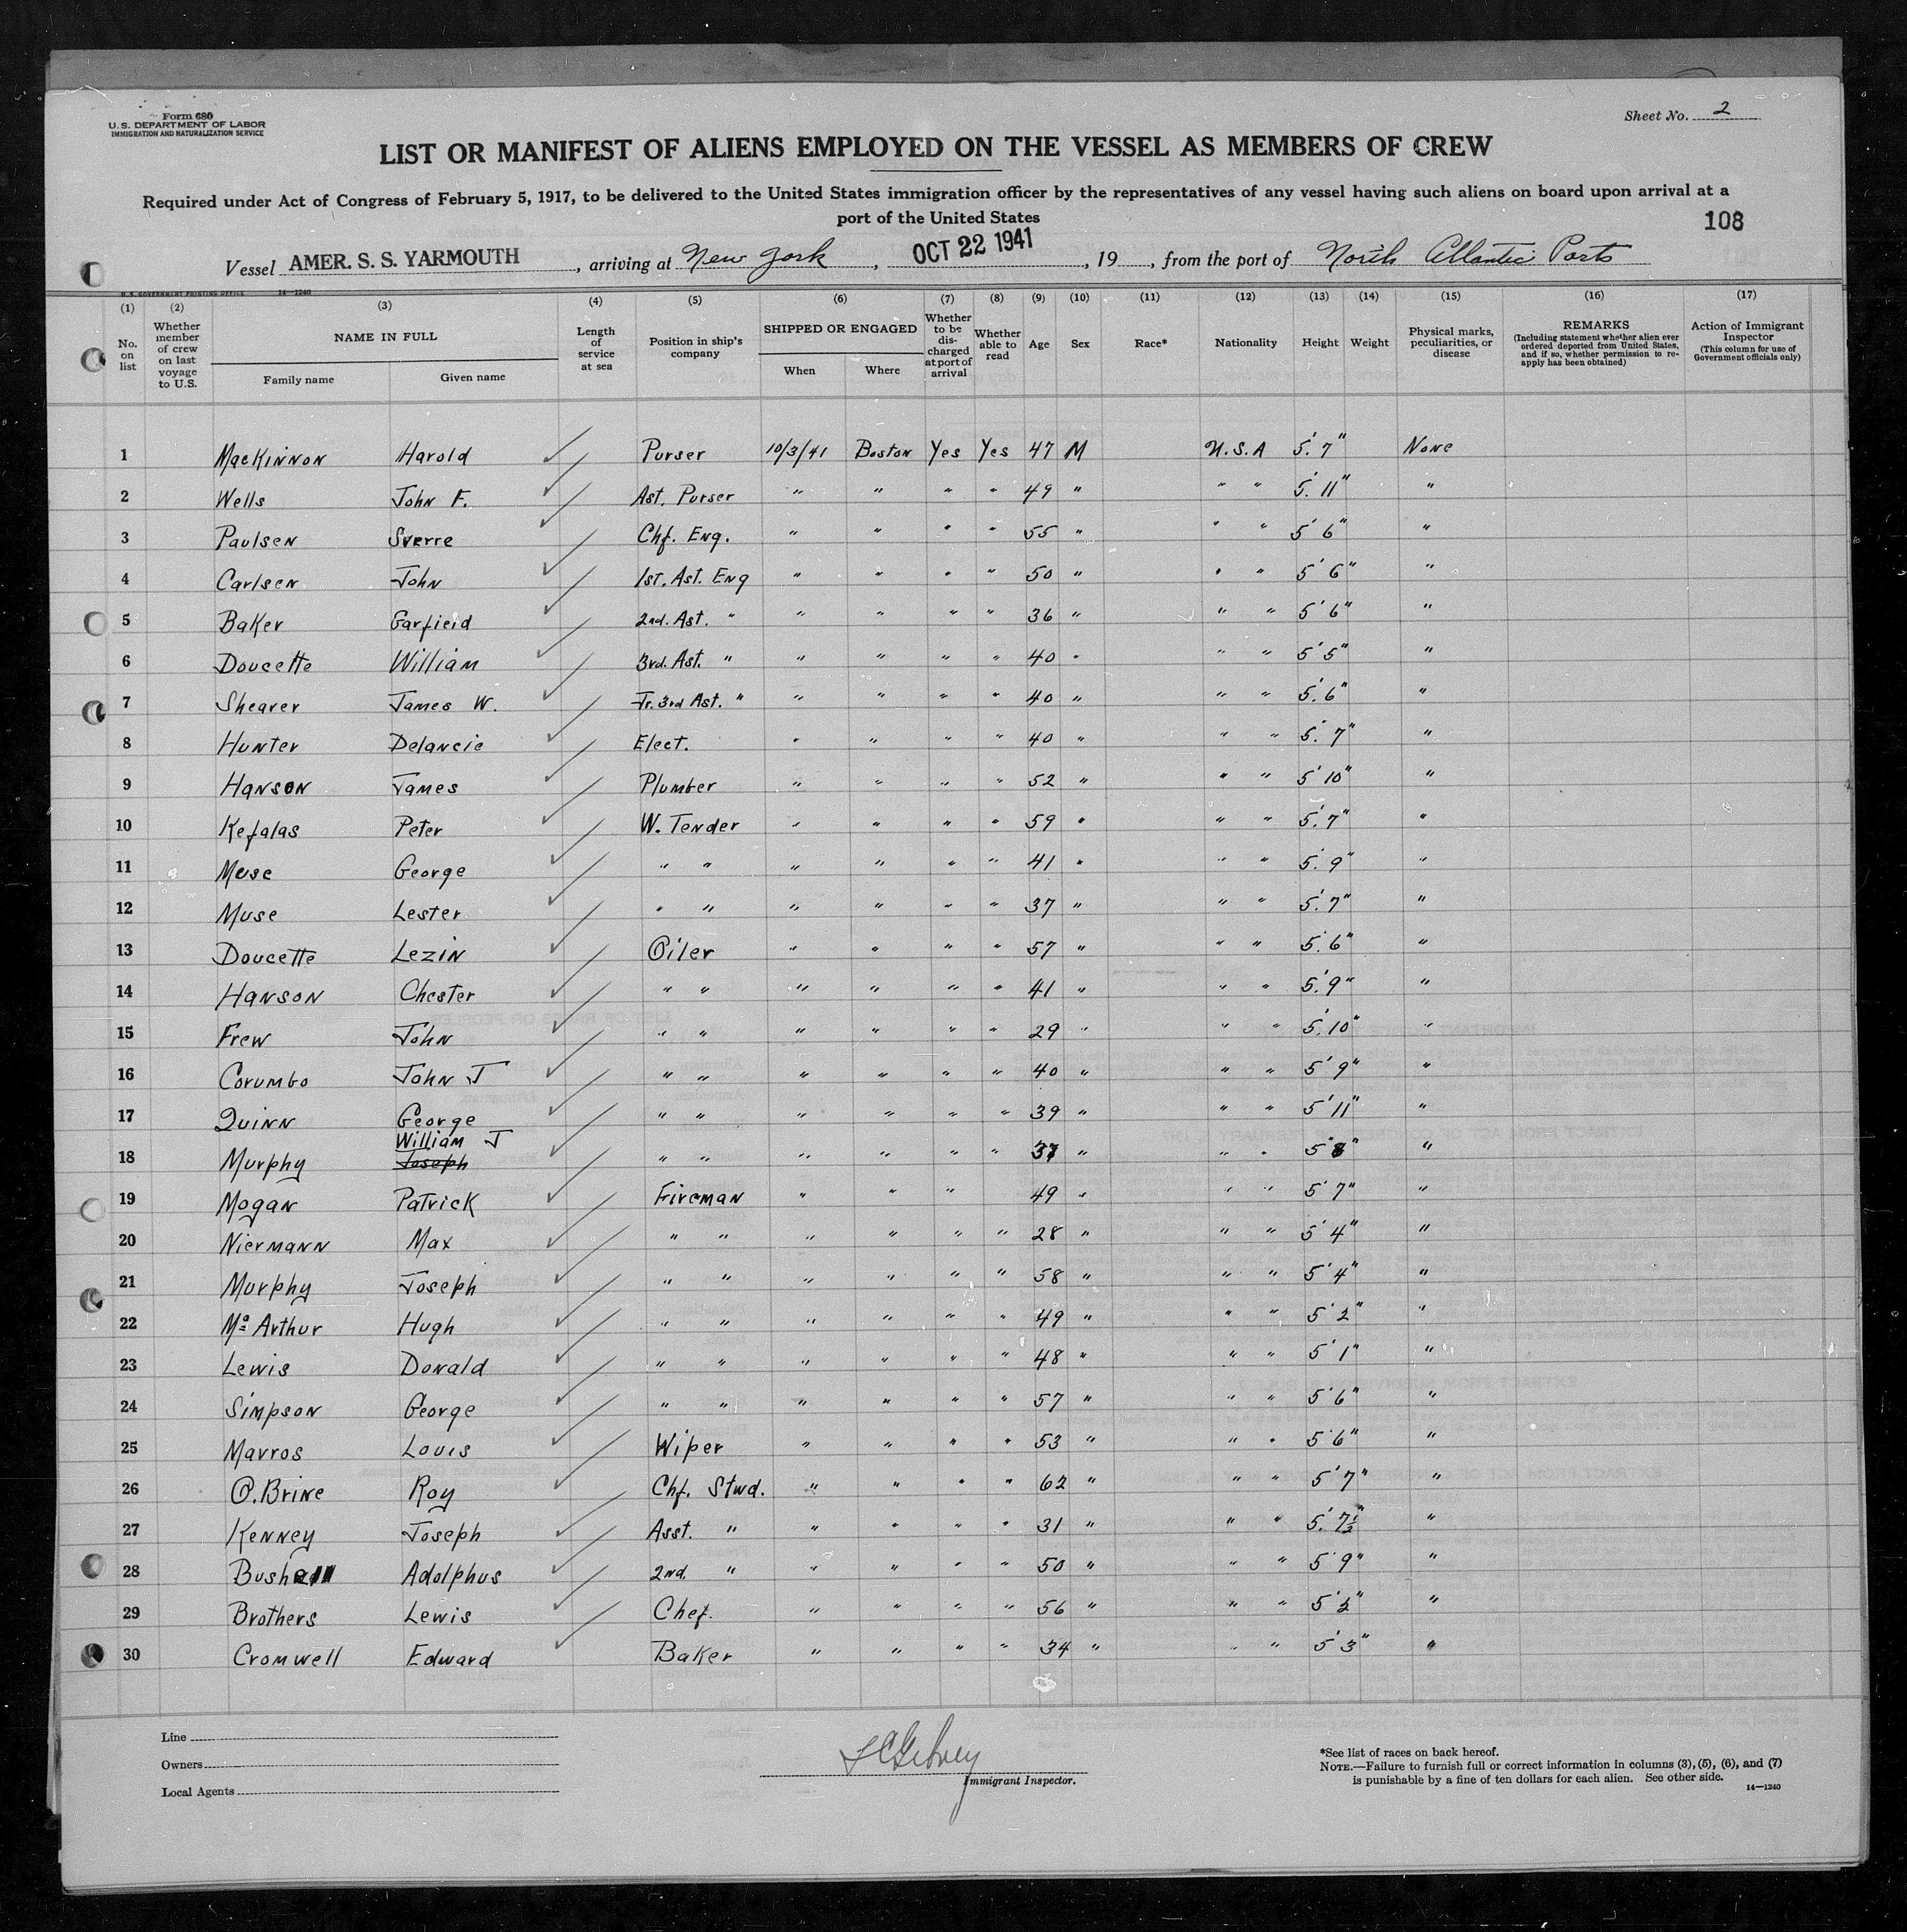 Form 680
U.S. DEPARTMENT OF LABOR
IMMIGRATION AND NATURALIZATION SERVICE
Sheet No. 2
LIST OR MANIFEST OF ALIENS EMPLOYED ON THE VESSEL AS MEMBERS OF CREW
Required under Act of Congress of February 5, 1917, to be delivered to the United States immigration officer by the representatives of any vessel having such aliens on board upon arrival at a
port of the United States
108
Vessel AMER. S. S. YARMOUTH, arriving at New York, OCT 22 1941, 19, from the port of North Atlantic Ports
U.S. GOVERNMENT PRINTING OFFICE 14—1240
(1) (2) (3) (4) (5) (6) (7) (8) (9) (10) (11) (12) (13) (14) (15) (16) (17)
No. on list
Whether member of crew on last voyage to U.S.
NAME IN FULL
Family name
Given name
Length of service at sea
Position in ship's company
SHIPPED OR ENGAGED
When
Where
Whether to be discharged at port of arrival
Whether able to read
Age
Sex
Race*
Nationality
Height
Weight
Physical marks, peculiarities, or disease
REMARKS
(Including statement whether alien ever ordered deported from United States, and if so, whether permission to reapply has been obtained)
Action of Immigrant Inspector
(This column for use of Government officials only)
1 MacKinnon Harold Purser 10/3/41 Boston Yes Yes 47 M U.S.A 5' 7" None
2 Wells John F. Ast. Purser " " " " 49 " " " 5' 11" "
3 Paulsen Sverre Chf. Eng. " " " " 55 " " " 5' 6" "
4 Carlsen John 1st. Ast. Eng " " " " 50 " " " 5' 6" "
5 Baker Garfield 2nd. Ast. " " " " " 36 " " " 5' 6" "
6 Doucette William 3rd. Ast. " " " " " 40 " " " 5' 5" "
7 Shearer James W. Jr. 3rd Ast. " " " " " 40 " " " 5' 6" "
8 Hunter Delancie Elect. " " " " 40 " " " 5' 7" "
9 Hanson James Plumber " " " " 52 " " " 5' 10" "
10 Kefalas Peter W. Tender " " " " 59 " " " 5' 7" "
11 Muse George " " " " " " 41 " " " 5' 9" "
12 Muse Lester " " " " " " 37 " " " 5' 7" "
13 Doucette Lezin Oiler " " " " 57 " " " 5' 6" "
14 Hanson Chester " " " " " " 41 " " " 5' 9" "
15 Frew John " " " " " " 29 " " " 5' 10" "
16 Corumbo John J " " " " " " 40 " " " 5' 9" "
17 Quinn George " " " " " " 39 " " " 5' 11" "
William J
18 Murphy Joseph " " " " " " 37 " " " 5' 8" "
19 Mogan Patrick Fireman " " " 49 " " " 5' 7" "
20 Niermann Max " " " " " " 28 " " " 5' 4" "
21 Murphy Joseph " " " " " " 58 " " " 5' 4" "
22 Mc Arthur Hugh " " " " " " 49 " " " 5' 2" "
23 Lewis Donald " " " " " " 48 " " " 5' 1" "
24 Simpson George " " " " " " 57 " " " 5' 6" "
25 Mavros Louis Wiper " " " " 53 " " " 5' 6" "
26 O.Brine Roy Chf. Stwd. " " " " 62 " " " 5' 7" "
27 Kenney Joseph Asst. " " " " " 31 " " " 5' 7½" "
28 Bushell Adolphus 2nd. " " " " " 50 " " " 5' 9" "
29 Brothers Lewis Chef. " " " " 56 " " " 5' 2" "
30 Cromwell Edward Baker " " " " 34 " " " 5' 3" "
Line
Owners
Local Agents
Immigrant Inspector.
*See list of races on back hereof.
NOTE.—Failure to furnish full or correct information in columns (3), (5), (6), and (7)
is punishable by a fine of ten dollars for each alien. See other side.
14—1240